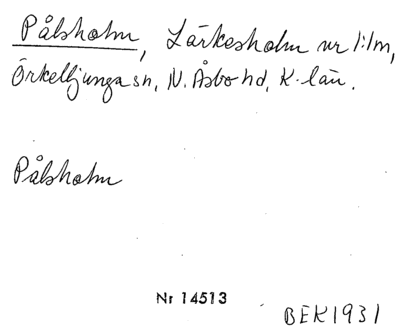 Pålsholm, Lärkesholm nr 1:1m,
Örkelljunga sn, N. Åsbo hd, K-län.
Pålsholm
Nr 14513
BEK1931